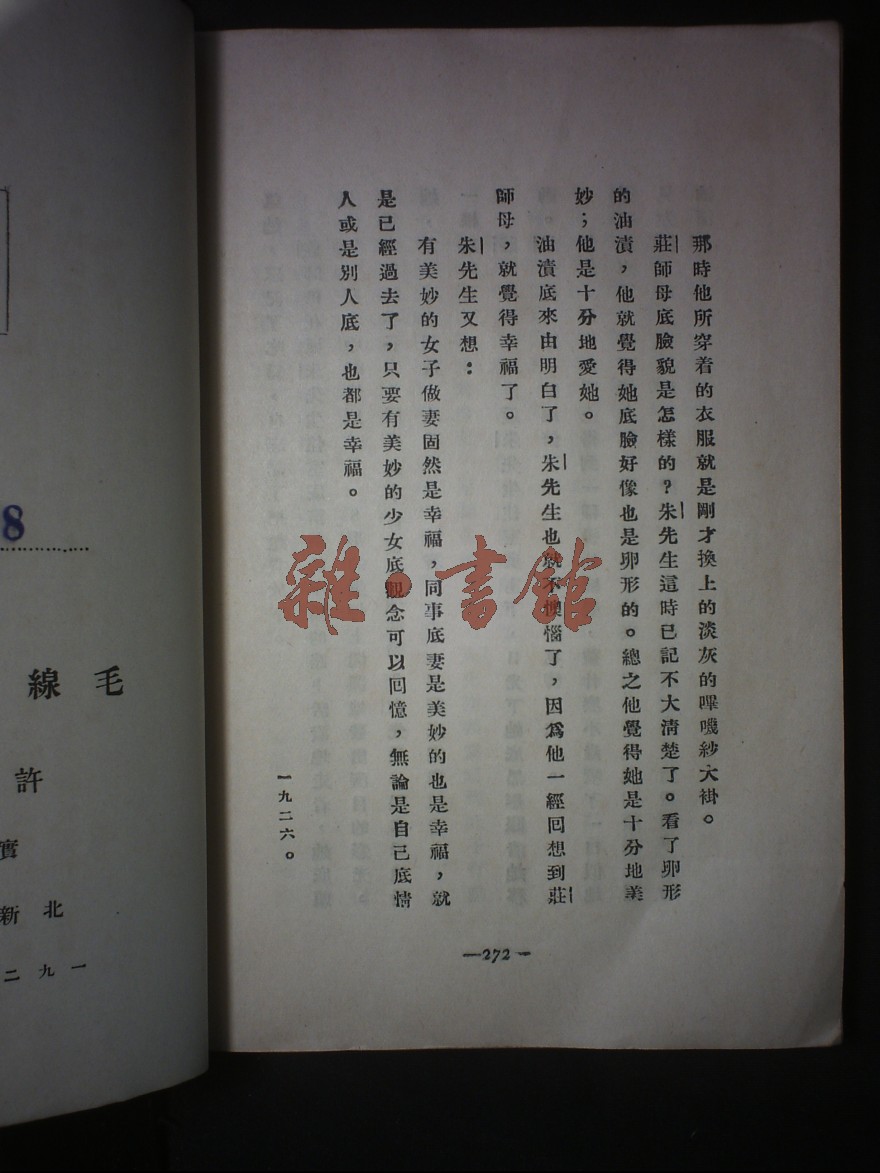 那時他所穿着的衣服就是剛才換上的淡灰的嗶嘰紗大褂。
莊師母底臉貌是怎樣的？朱先生這時已記不大清楚了。看了卵形
的油漬，他就覺得她底臉好像也是卵形的。總之他覺得她是十分地美
妙；他是十分地愛她。
油漬底來由明白了，朱先生也就不懊惱了，因爲他一經回想到莊
師母，就覺得幸福了。
朱先生又想：
有美妙的女子做妻固然是幸福，同事底妻是美妙的也是幸福，就
是已經過去了，只要有美妙的少女底觀念可以回憶，無論是自己底情
人或是別人底，也都是幸福。
一九二六。
—272—
雜·書館
8
毛線
許
實
北新
一九二